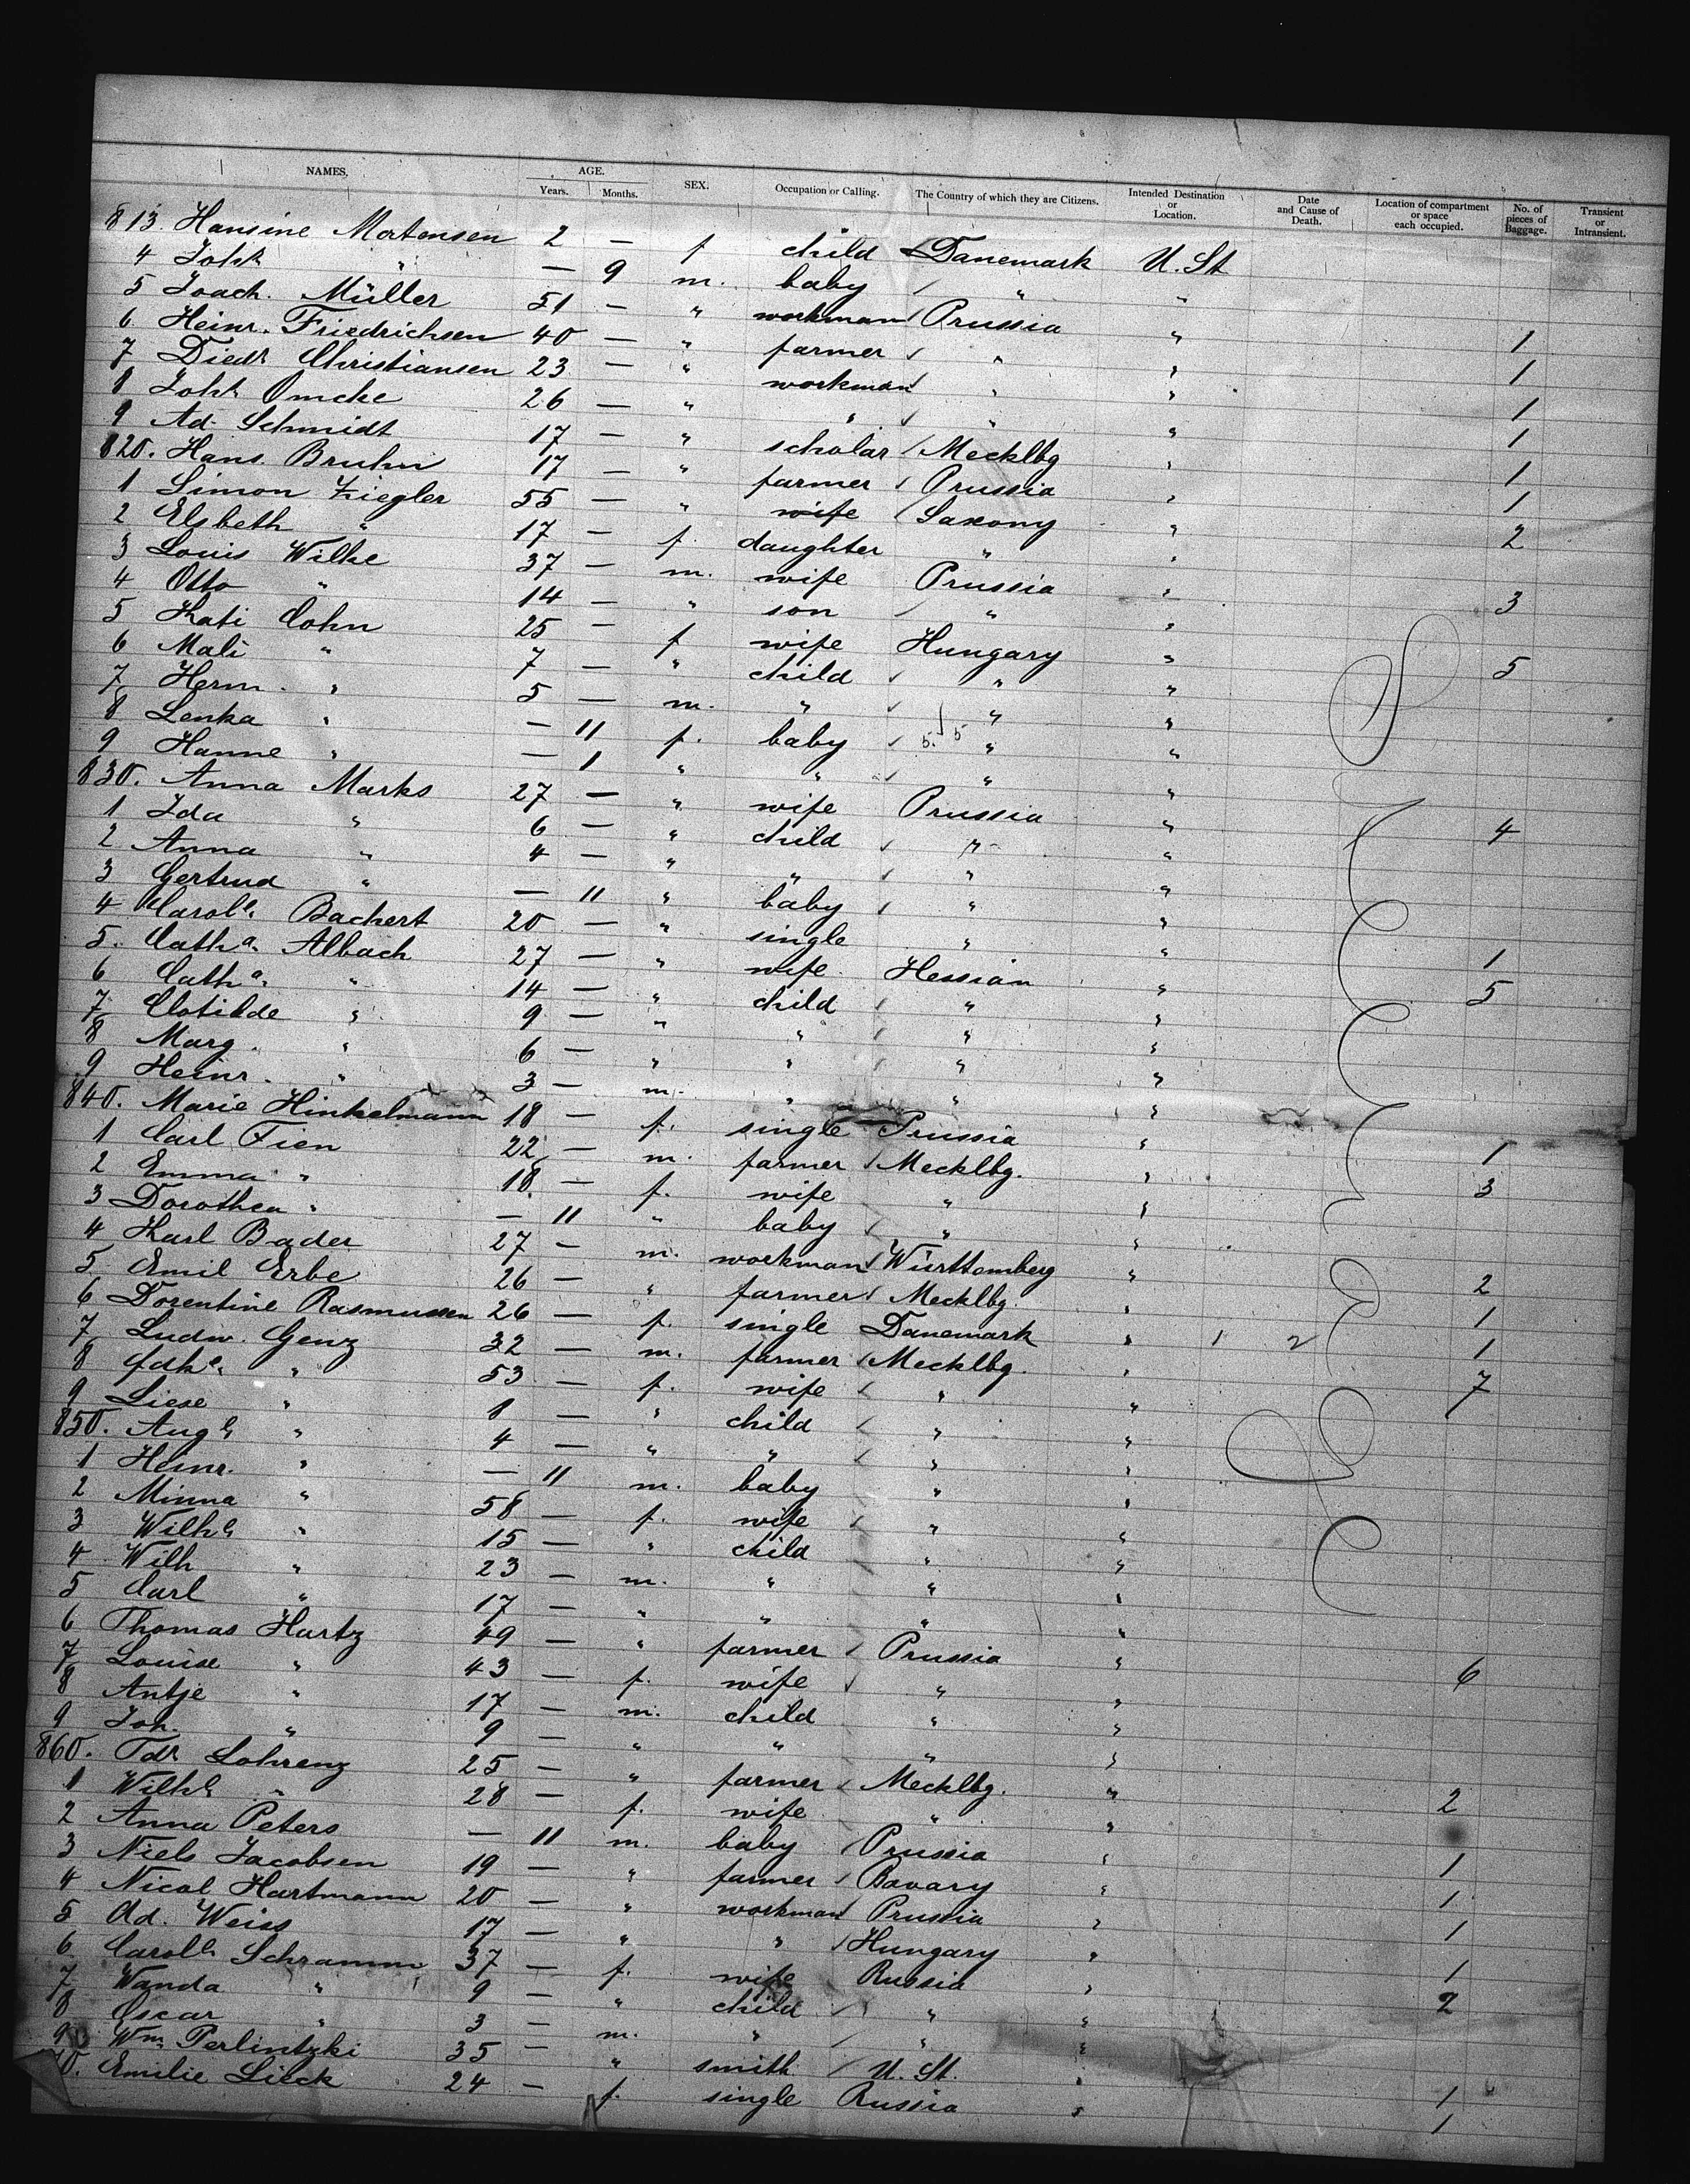 NAMES. AGE. SEX. Occupation or Calling. The Country of which they are Citizens. Intended Destination or Location. Date and Cause of Death. Location of compartment or space each occupied. No. of pieces of Baggage. Transient or Intransient.
Years. Months.
813. Hansine Mortensen 2 — f child Danemark U. St
4 Joh. " — 9 m. baby " "
5 Joach. Müller 51 — " workman Prussia " 1
6 Heinr. Friedrichsen 40 — " farmer " " 1
7 Diedr Christiansen 23 — " workman " " 1
8 Joh. Omcke 26 — " " " " 1
9 Ad. Schmidt 17 — " scholar Mecklbg " 1
820. Hans. Bruhn 17 — " farmer Prussia " 1
1 Simon Ziegler 55 — " wife Saxony " 2
2 Elsbeth " 17 — f. daughter " "
3 Louis Wilke 37 — m. wife Prussia " 3
4 Otto " 14 — " son " "
5 Kati Cohn 25 — f wife Hungary " 5
6 Mali " 7 — " child " "
7 Herm. " 5 — m. " " "
8 Lenka " — 11 f. baby " "
9 Hanne " — 1 " " " "
830. Anna Marks 27 — " wife Prussia " 4
1 Ida " 6 — " child " "
2 Anna " 4 — " " " "
3 Gertrud " — 11 " baby " "
4 Carole. Bachert 20 — " single " " 1
5. Catha. Albach 27 — " wife Hessian " 5
6 Catha. " 14 — " child " "
7 Clotilde " 9 — " " " "
8 Marg. " 6 — " " " "
9 Heinr. " 3 — m. " " "
840. Marie Hinkelmann 18 — f. single Prussia " 1
1 Carl Fien 22 — m. farmer Mecklbg. " 3
2 Emma " 18 — f. wife " "
3 Dorothea " — 11 " baby " "
4 Karl Bader 27 — m. workman Württemberg " 2
5 Emil Erbe 26 — " farmer Mecklbg. " 1
6 Dorentine Rasmussen 26 — f. single Danemark " 1 2 1
7 Ludw. Genz 32 — m. farmer Mecklbg. " 7
8 " 53 — f. wife " "
9 Liese " 8 — " child " "
850. Auge " 4 — " " " "
1 Heinr. " — 11 m. baby " "
2 Minna " 58 — f. wife " "
3 Wilhe " 15 — " child " "
4 Wilh " 23 — m. " " "
5 Carl " 17 — " " " "
6 Thomas Hartz 49 — " farmer Prussia " 6
7 Louise " 43 — f. wife " "
8 Antje " 17 — m. child " "
9 Joh. " 9 — " " " "
860. Fdr Lohrenz 25 — " farmer Mecklbg. " 2
1 Wilhe " 28 — f. wife " "
2 Anna Peters — 11 m. baby Prussia " 1
3 Niels Jacobsen 19 — " farmer Bavary " 1
4 Nicol Hartmann 20 — " workman Prussia " 1
5 Ad. Weiss 17 — " " Hungary " 1
6 Carole Schramm 37 — f. wife Russia " 2
7 Wanda " 9 — " child " "
8 Oscar " 3 — m. " " "
9 Wm. Perlintzki 35 — " smith U. St. 1
70. Emilie Lieck 24 — f. single Russia " 1